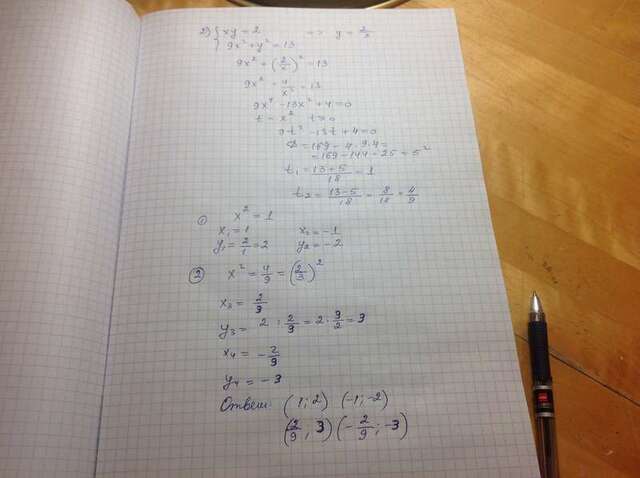 2) { xy = 2 => y = 2/x
9x² + y² = 13
9x² + (2/x)² = 13
9x² + 4/x² = 13
9x⁴ - 13x² + 4 = 0
t = x² t ≥ 0
9t² - 13t + 4 = 0
D = 169 - 4 · 9 · 4 =
= 169 - 144 = 25 = 5²
t₁ = (13+5)/18 = 1
t₂ = (13-5)/18 = 8/18 = 4/9
① x² = 1
x₁ = 1 x₂ = -1
y₁ = 2/1 = 2 y₂ = -2
② x² = 4/9 = (2/3)²
x₃ = 2/9
y₃ = 2 : 2/9 = 2 · 9/2 = 3
x₄ = -2/9
y₄ = -3
Ответ: (1; 2) (-1; -2)
(2/9; 3) (-2/9; -3)